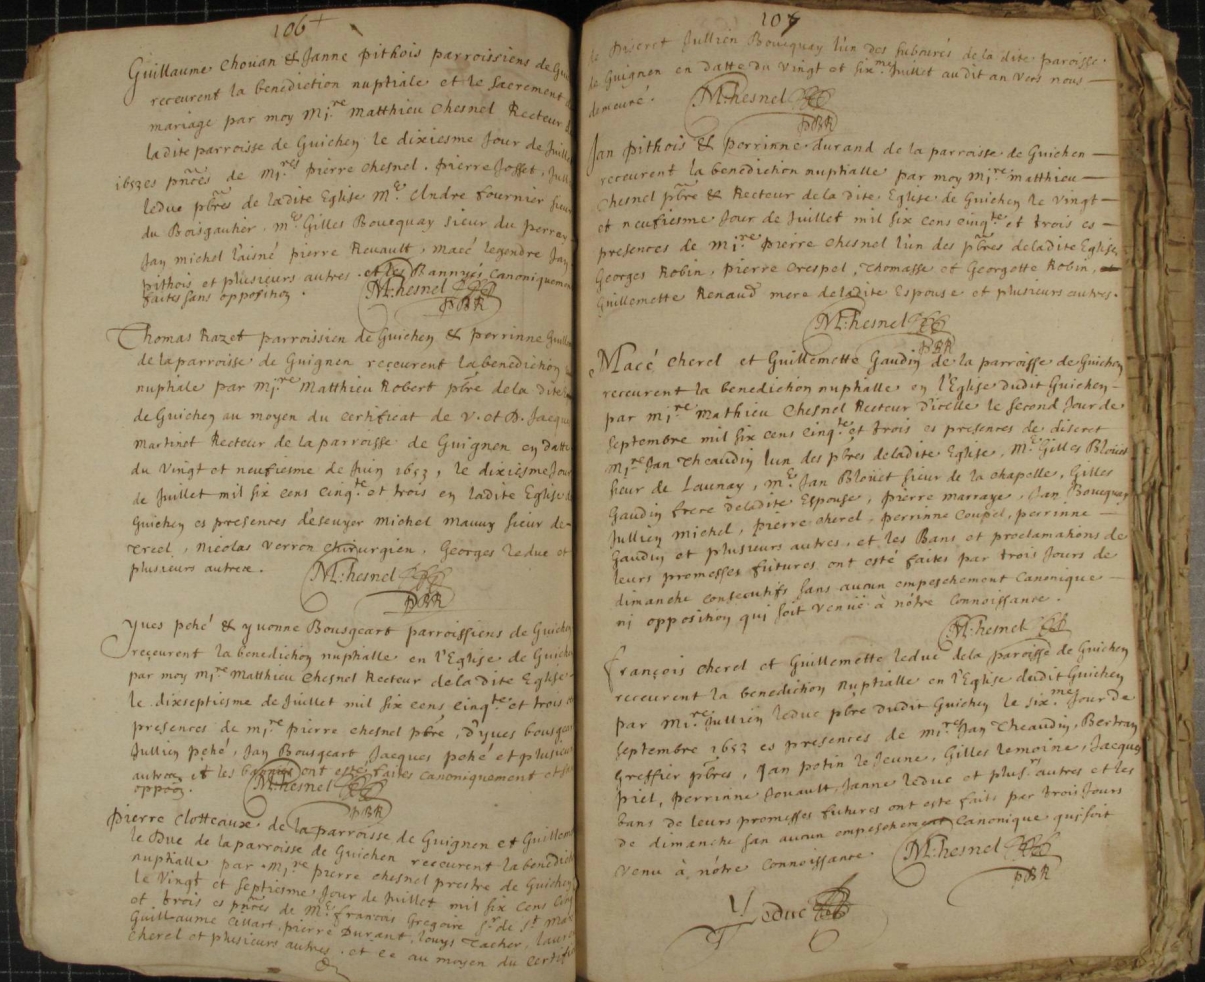 106
Guillaume Chouan & Janne pithois parroissiens de
receurent la benediction nuptiale et le sacrement
mariage par moy Mi.re Matthieu Chesnel Recteur
ladite parroisse de Guichen le dixiesme Jour de Juill
1653 es pnces de Mi.res pierre Chesnel. pierre Josset,
leduc pbres de ladite Eglise M.e Andre fournier sieur
du Boisgautier. M.e Gilles Boucquay sieur du perray
Jan michel l'aisné pierre Renault, macé Legendre Jan
pithois et plusieurs autres. et les Bannyes Canoniquement
faites sans opposition.
M:hesnel
PBR
Thomas Razet parroissien de Guichen & perrinne
de la parroisse de Guignen reçeurent la benediction
nuptiale par Mi.re Matthieu Robert pbre de la dite
de Guichen au moyen du certificat de V. et D. Jacque
Martinot Recteur de la parroisse de Guignen en datte
du vingt et neufiesme de Juin 1653, le dixiesme Jour
de Juillet mil six cens cinq.te et trois en ladite Eglise
Guichen es presences d'escuyer Michel mauny sieur de
treel, Nicolas Verron chirurgien, Georges leduc et
plusieurs autres.
M:hesnel
PBR
Yves pché & yvonne Bousgeart parroissiens de Guichen
reçeurent la benediction nuptialle en l'Eglise de Guichen
par moy Mi.re Matthieu Chesnel Recteur de la dite Eglise
le dixseptiesme de Juillet mil six cens cinq.te et trois
presences de mi.re pierre chesnel pbre, d'yves bousgeart
Jullien pehé, Jan Bousgeart Jacques pehé et plusieurs
autres et les bannies ont esté faites canoniquement et
oppoon.
M:hesnel
PBR
pierre Clotteaux de la parroisse de Guignen et Guillem
le Duc de la parroisse de Guichen receurent la benedict
nuptialle par Mi.re pierre chesnel prestre de Guichen
le vingt et septiesme Jour de Juillet mil six cens cinq
et trois es pnces de M.e francois Gregoire S.r de S.t
Guillaume Cillart, pierre Durant, Louys Tacher,
Cherel et plusieurs autres. et ce au moyen du certifi
107
de Discret Jullien Boucquay l'un des subcurés de la dite paroisse
de Guignen en datte du vingt et six.me Juillet audit an vers nous
demeuré.
M:hesnel
PBR
Jan pithois & perrinne durand de la parroisse de Guichen
receurent la benediction nuptialle par moy Mi.re matthieu
Chesnel pbre & Recteur de la dite Eglise de Guichen le vingt
et neufiesme Jour de Juillet mil six cens cinq.te et trois es
presences de Mi.re pierre Chesnel l'un des pbres de ladite Eglise
Georges Robin, pierre Crespel, Thomasse et Georgette Robin,
Guillemette Renaud mere de la dite Espouse et plusieurs autres.
M:hesnel
PBR
Macé Cherel et Guillemette Gaudin de la parroisse de Guichen
receurent la benediction nuptialle en l'Eglise dudit Guichen
par Mi.re Mathieu Chesnel Recteur d'icelle le second Jour de
septembre mil six cens cinq.te et trois es presences de discret
Mi.re Jan Theaudin l'un des pbres de ladite Eglise, M.e Gilles Blouet
sieur de Launay, M.e Jan Blouët sieur de la chapelle, Gilles
Gaudin frere de ladite Espouse, pierre marraye, Jan Boucquay
Jullien michel, pierre cherel, perrinne Coupel, perrinne
Gaudin et plusieurs autres. et les Bans et proclamations de
leurs promesses futures ont esté faites par trois Jours de
dimanche consecutifs sans aucun empeschement Canonique
ni opposition qui soit venüe à nôtre Connoissance.
M:hesnel
françois Cherel et Guillemette leduc de la paroisse de Guichen
receurent la benediction Nuptialle en l'Eglise dudit Guichen
par Mi.re Jullien leduc pbre dudit Guichen le six.me Jour de
septembre 1653 es presences de mi.res Jan Theaudin, Bertran
Greffier pbres, Jan potin le Jeune, Gilles lemoine, Jacques
piel, perrinne Jouault, Janne leduc et plus.rs autres et les
bans de leurs promesses futures ont esté faits par trois Jours
de dimanche san aucun empeschement Canonique qui soit
venu à nôtre Connoissance.
M:hesnel
PBR
Leduc